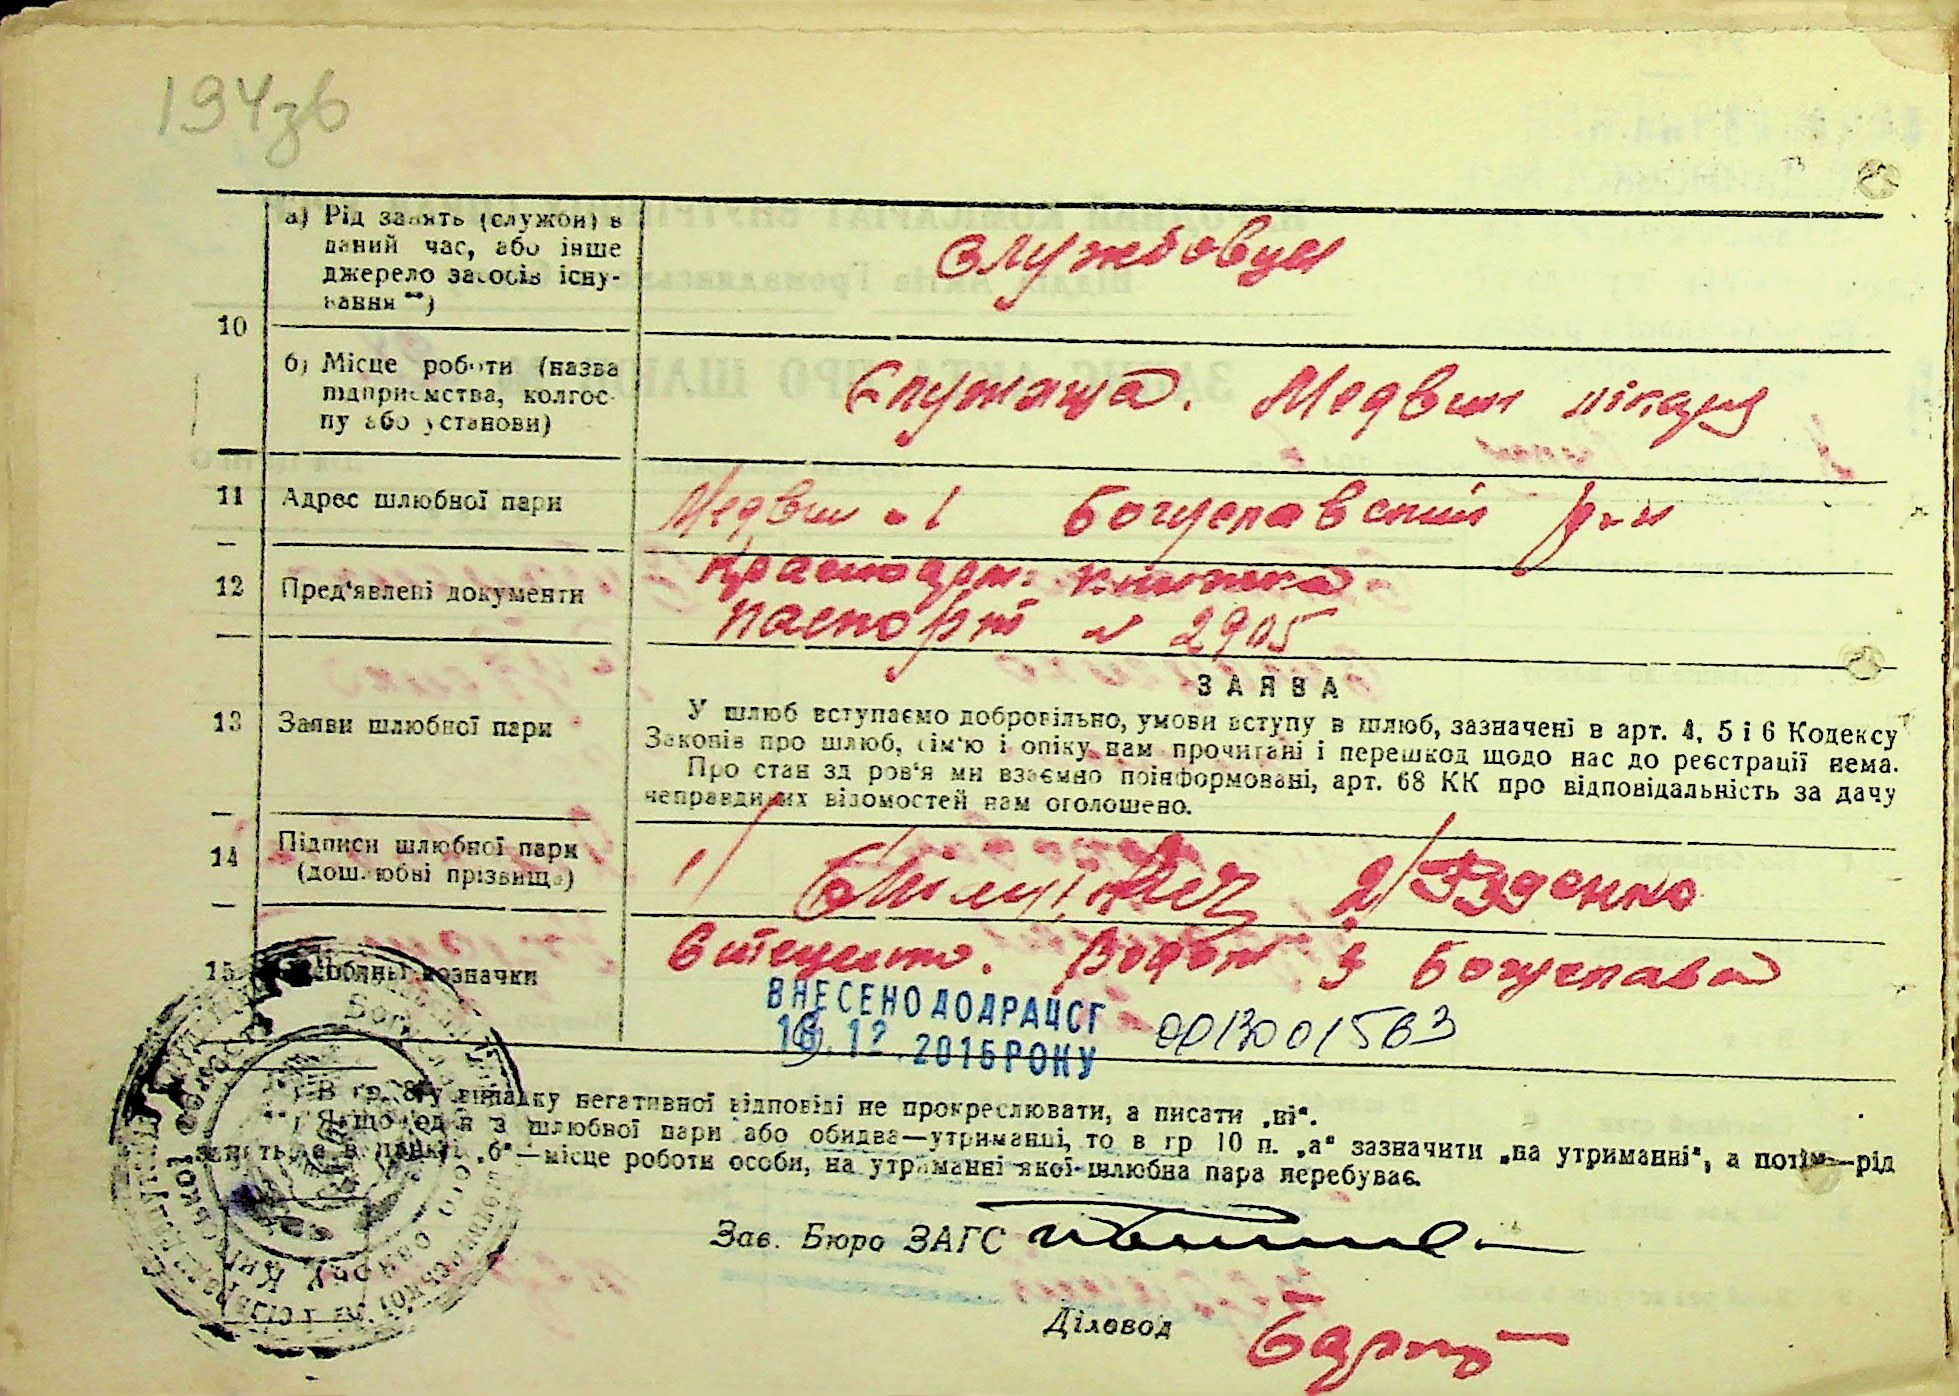 194зв
а) Рід занять (служби) в
даний час, або інше
джерело засобів існу-
вання **)
службовци
10
б) Місце роботи (назва
підприємства, колгос-
пу або установи)
Служаща. Медвин лікарц
11 Адрес шлюбної пари
Медвин Богуславский р-н
12 Пред'явлені документи
Красноарм. книжка
паспорт № 2905
13 Заяви шлюбної пари
ЗАЯВА
У шлюб вступаємо добровільно, умови вступу в шлюб, зазначені в арт. 4, 5 і 6 Кодексу
Законів про шлюб, сім'ю і опіку нам прочитані і перешкод щодо нас до реєстрації нема.
Про стан здоров'я ми взаємно поінформовані, арт. 68 КК про відповідальність за дачу
неправдивих відомостей нам оголошено.
14 Підписи шлюбної пари
(дошлюбні прізвища)
1/ 2/ Руденко
15 Особливі позначки
з Богуслава
ВНЕСЕНО ДО ДРАЦСГ
12.2016 РОКУ
0013001563
*) В гр. 8 у випадку негативної відповіді не прокреслювати, а писати „ні".
**) Якщо один з шлюбної пари або обидва—утриманці, то в гр 10 п. „а" зазначити „на утриманні", а потім—рід
занять, а в пункті „б"—місце роботи особи, на утриманні якої шлюбна пара перебуває.
Зав. Бюро ЗАГС
Діловод